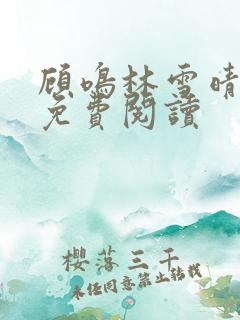 顾鸣林雪晴
免費閱讀
櫻落三千
未任同意禁止转载